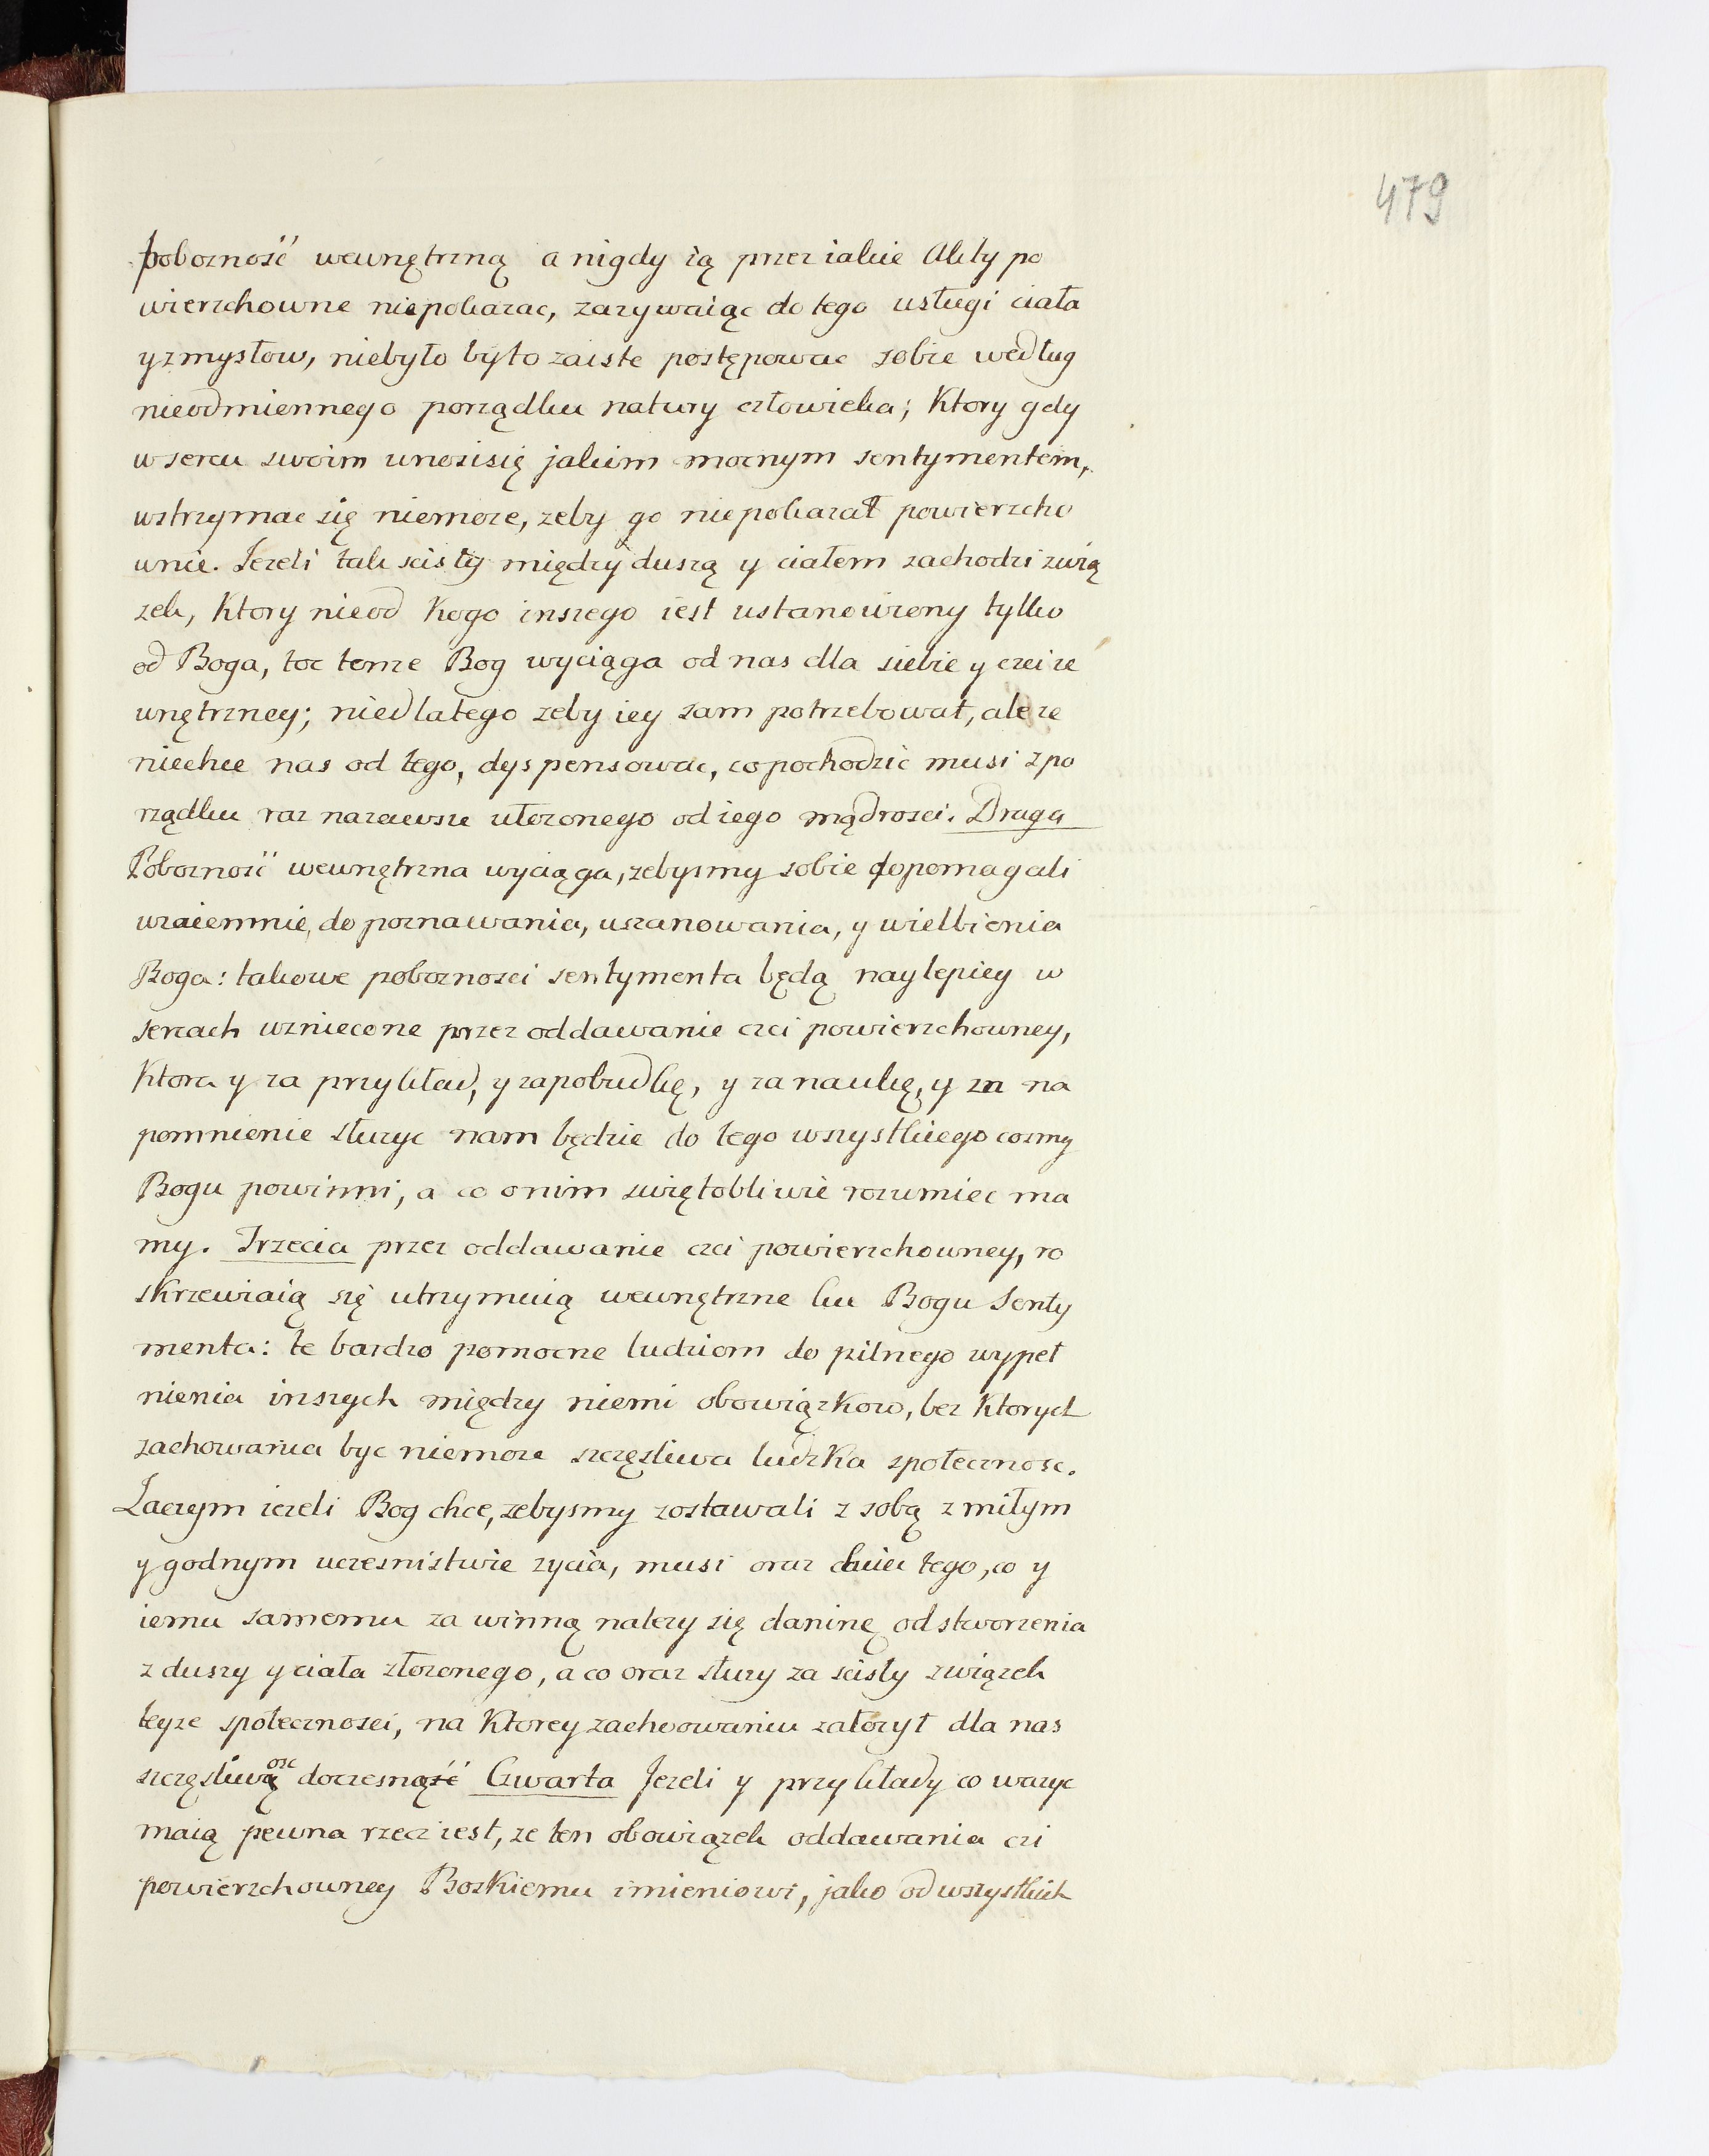 479
pobozność wewnętrzną a nigdy ią przez iakie Akty po
wierzchowne niepokazac, zazywaiąc do tego usługi ciała
y zmysłow, niebyło było zaiste postępowac sobie według
nieodmiennego porządku natury człowieka; Ktory gdy
w sercu swoim unosi się jakim mocnym sentymentem,
wstrzymac się niemoze, zeby go niepokazał powierzcho
wnie. Jezeli tak scisły między duszą y ciałem zachodzi zwią
zek, Ktory nieod Kogo inszego iest ustanowiony tylko
od Boga, toc tenze Bog wyciąga od nas dla siebie y czci ze
wnętrzney; niedlatego zeby iey sam potrzebował, ale ze
niechce nas od tego, dyspensowac, co pochodzić musi z po
rządku raz nazawsze ułozonego od iego mądrosci. Druga
Pobozność wewnętrzna wyciąga, zebysmy sobie dopomagali
wzaiemnie, do poznawania, uszanowania, y wielbienia
Boga: takowe poboznosci sentymenta będą naylepiey w
sercach wzniecone przez oddawanie czci powierzchowney,
Ktora y za przykład, y zapobudkę, y za naukę, y za na
pomnienie słuzyc nam będzie do tego wszystkiego cosmy
Bogu powinni, a co o nim swiętobliwie rozumiec ma
my. Trzecia przez oddawanie czci powierzchowney, ro
skrzewiaią się utrzymuią wewnętrzne ku Bogu Senty
menta: te bardzo pomocne ludziom do pilnego wypeł
nienia inszych między niemi obowiązkow, bez Ktorych
zachowania byc niemoze szczęsliwa ludzka społecznosc.
Zaczym iezeli Bog chce, zebysmy zostawali z sobą z miłym
y godnym uczesnistwie zycia, musi oraz chciec tego, co y
iemu samemu za winną nalezy się daninę od stworzenia
z duszy y ciała złozonego, a co oraz słuzy za scisły związek
teyze społecznosci, na Ktorey zachoowaniu załozył dla nas
szczęsliwąosc doczesnąść Czwarta Jezeli y przykłady co wazyc
maią pewna rzecz iest, ze ten obowiązek oddawania czi
powierzchowney Boskiemu imieniowi, jako od wszystkich